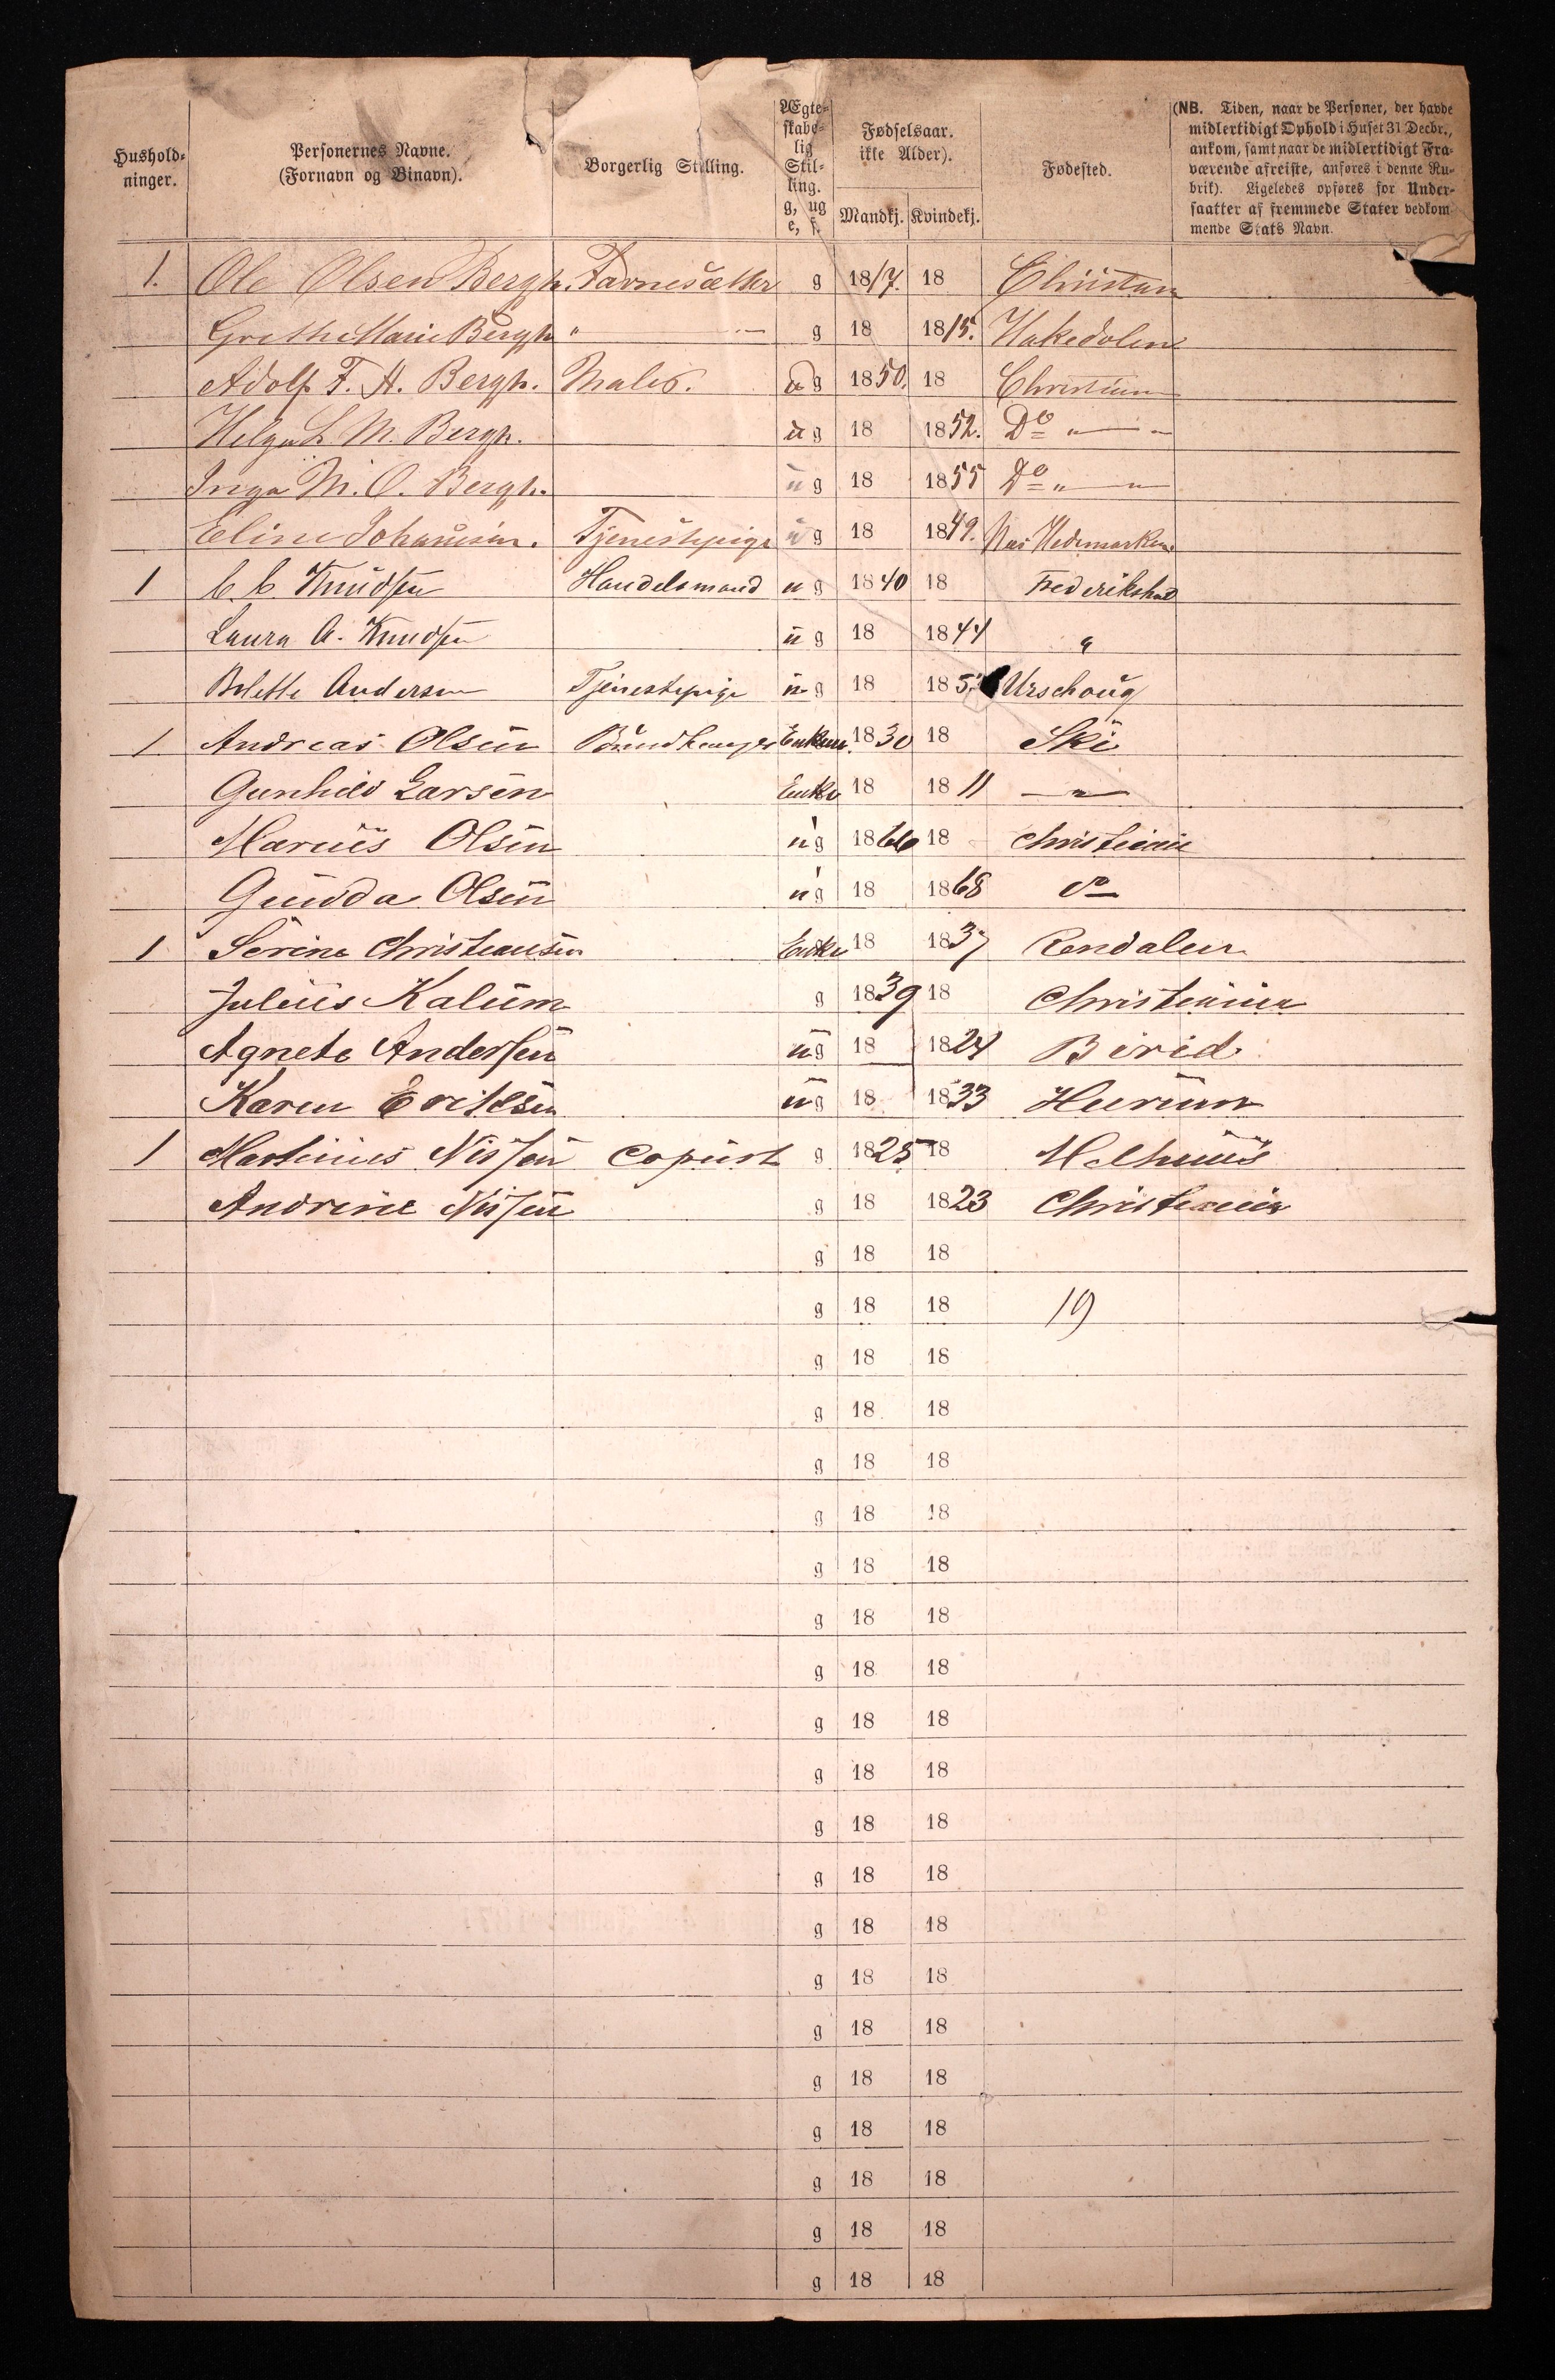 Hushold-
ninger.
Personernes Navne.
(Fornavn og Binavn).
Borgerlig Stilling.
Ægte-
skabe-
lig
Stil-
ling.
g, ug
e, f.
Fødselsaar.
ikke Alder).
Mandkj. Kvindekj.
Fødested.
(NB. Tiden, naar de Personer, der havde
midlertidigt Ophold i Huset 31 Decbr.,
ankom, samt naar de midlertidigt Fra-
værende afreiste, anføres i denne Ru-
brik). Ligeledes opføres for Under-
saatter af fremmede Stater vedkom-
mende Stats Navn.
1. Ole Olsen Bergh. g 1817. 18
Grethe Marie Bergh " — g 18 1815. Hakedolen
Adolf F. H. Bergh. Maler. ug 1850. 18 Christiania
Helga L. M. Bergh. ug 18 1852. Do " — "
Inga M. O. Bergh. ug 18 1855 Do " — "
Eline Johansen. Tjenestepige ug 18 1849. Næs Hedemarken
1 C. C. Knudsen Handelsmand ug 1840 18 Frederikshald
Laura A. Knudsen ug 18 1844 "
Bolette Andersen Tjenestepige ug 18 185 Urschoug
1 Andreas Olsen Enkem. 1830 18 Ski
Gunhild Larsen Enke 18 1811 — " —
Marius Olsen ug 1866 18 Christiania
Gunda Olsen ug 18 1868 do
1 Serine Christiansen Enke 18 1837 Rendalen
Julius Kalum g 1839 18 Christiania
Agnete Andersen ug 18 1824 Birid
Karen Eriksen ug 18 1833 Hurum
1 Martinius Nissen Copiist g 1825 18 Melhuus
Andrine Nissen g 18 1823 Christiania
g 18 18
g 18 18 19
g 18 18
g 18 18
g 18 18
g 18 18
g 18 18
g 18 18
g 18 18
g 18 18
g 18 18
g 18 18
g 18 18
g 18 18
g 18 18
g 18 18
g 18 18
g 18 18
g 18 18
g 18 18
g 18 18